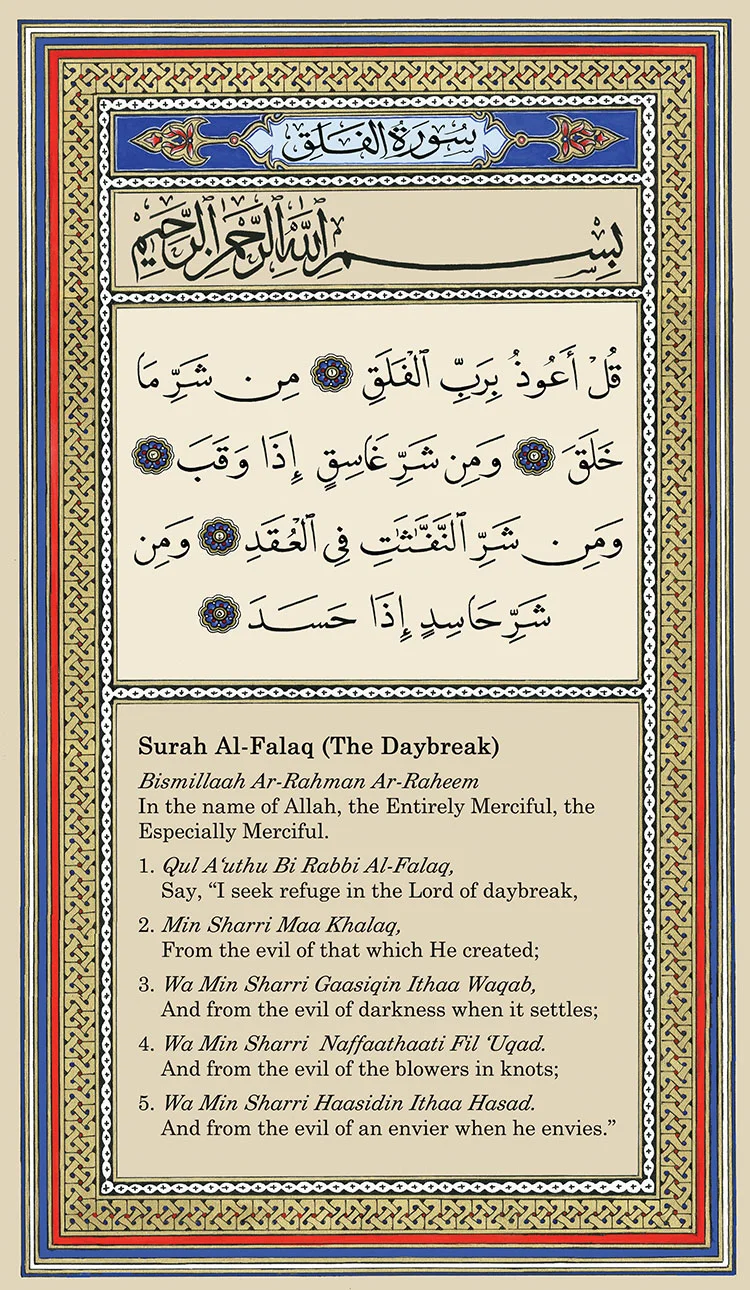 سُورَةُ الفَلَقِ
بِسْمِ اللَّهِ الرَّحْمَٰنِ الرَّحِيمِ
قُلْ أَعُوذُ بِرَبِّ ٱلْفَلَقِ ١ مِن شَرِّ مَا
خَلَقَ ٢ وَمِن شَرِّ غَاسِقٍ إِذَا وَقَبَ ٣
وَمِن شَرِّ ٱلنَّفَّٰثَٰتِ فِي ٱلْعُقَدِ ٤ وَمِن
شَرِّ حَاسِدٍ إِذَا حَسَدَ ٥
Surah Al-Falaq (The Daybreak)
Bismillaah Ar-Rahman Ar-Raheem
In the name of Allah, the Entirely Merciful, the
Especially Merciful.
1. Qul A‘uthu Bi Rabbi Al-Falaq,
Say, “I seek refuge in the Lord of daybreak,
2. Min Sharri Maa Khalaq,
From the evil of that which He created;
3. Wa Min Sharri Gaasiqin Ithaa Waqab,
And from the evil of darkness when it settles;
4. Wa Min Sharri  Naffaathaati Fil ‘Uqad.
And from the evil of the blowers in knots;
5. Wa Min Sharri Haasidin Ithaa Hasad.
And from the evil of an envier when he envies.”